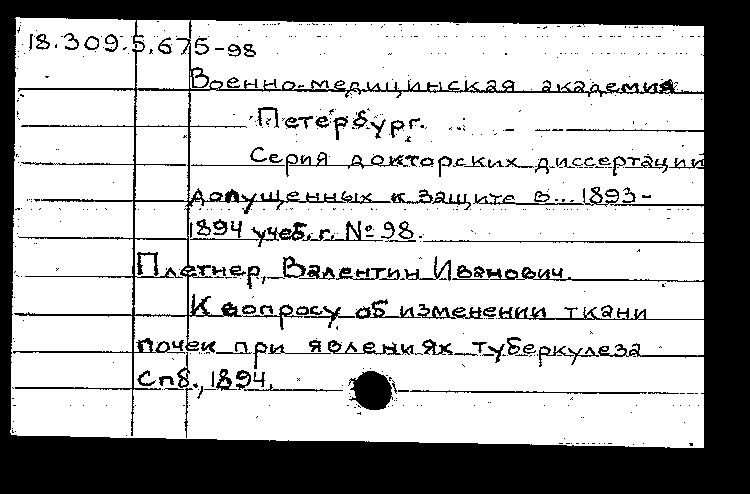 18.309.5.675-98
Военно-медицинская академия
Петербург.
Серия докторских диссертаций
допущенных к защите в... 1893-
1894 учеб. г. № 98.
Плетнер, Валентин Иванович.
К вопросу об изменении ткани
почек при явлениях туберкулеза
Спб., 1894.